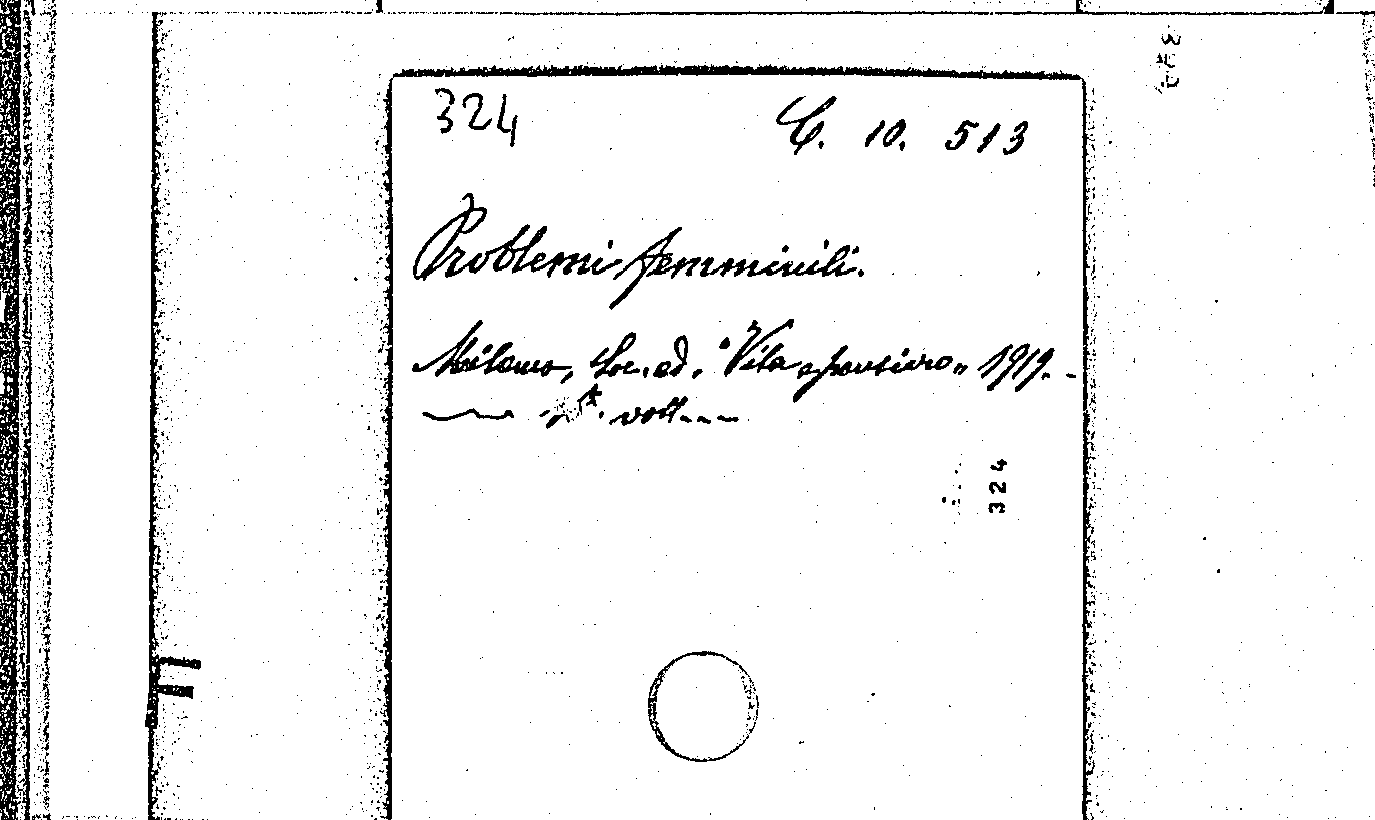 324 C. 10. 513
Problemi femminili.
Milano, Soc. ed. "Vita e pensiero" 1919. -
voll---
324